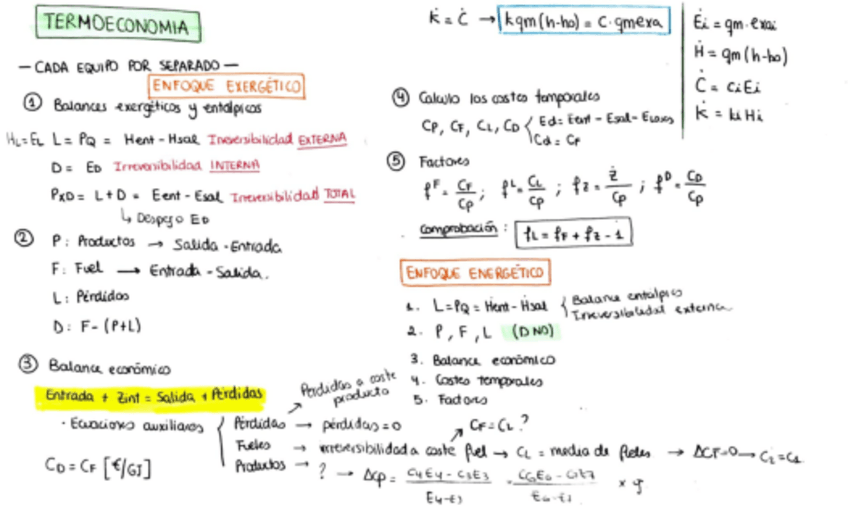 TERMOECONOMIA
— CADA EQUIPO POR SEPARADO —
ENFOQUE EXERGÉTICO
① Balances exergéticos y entálpicos
HL=EL L = PQ = Hent - Hsal Irreversibilidad EXTERNA
D = ED Irreversibilidad INTERNA
PXD = L + D = Eent - Esal Irreversibilidad TOTAL
↳ Despejo ED
② P: Productos → Salida - Entrada
F: Fuel → Entrada - Salida.
L: Pérdidas
D: F - (P+L)
③ Balance económico
Entrada + Zint = Salida + Pérdidas
· Ecuaciones auxiliares
Pérdidas a coste producto
Pérdidas → pérdidas = 0
CF = CL ?
Fueles → irreversibilidad a coste fuel → CL = media de fueles → ΔCF=0 → C2 = C1
Productos → ? → Δcp = (C4E4 - C3E3)/(E4-E3) =
CD = CF [€/GJ]
K̇ = Ċ → kqm(h-ho) = C·qmexa
Ėi = qm·exai
Ḣ = qm(h-ho)
Ċ = ciEi
K̇ = kiHi
④ Calculo los costes temporales
CP, CF, CL, CD { Ed = Eent - Esal -
Cd = CF
⑤ Factores
fF = CF/CP ; fL = CL/CP ; fZ = Ż/CP ; fD = CD/CP
Comprobación: fL = fF + fZ - 1
ENFOQUE ENERGÉTICO
1. L = PQ = Hent - Hsal { Balance entálpico
Irreversibilidad externa
2. P, F, L (D NO)
3. Balance económico
4. Costes temporales
5. Factores